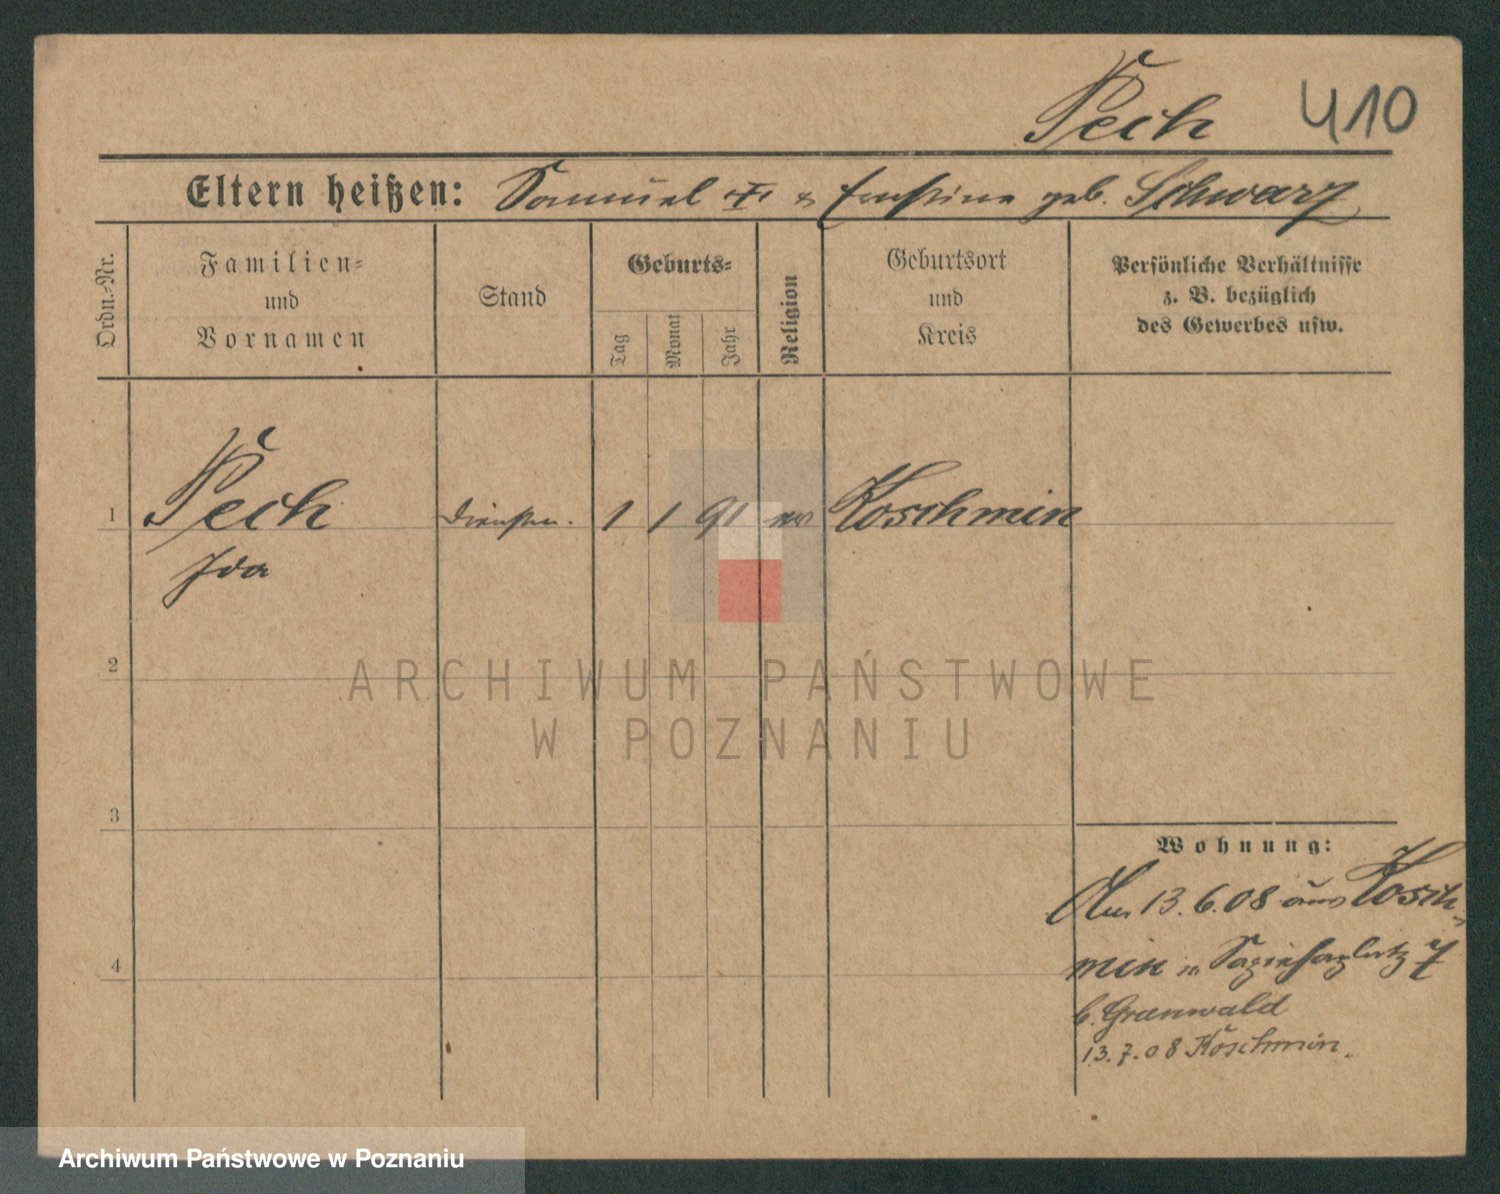 Pech 410
Eltern heißen: Samuel & Ernstine geb. Schwarz
Ordn.-Nr.
Familien-
und
Vornamen
Stand
Geburts-
Tag
Monat
Jahr
Religion
Geburtsort
und
Kreis
Persönliche Verhältnisse
z. B. bezüglich
des Gewerbes usw.
1 Pech 1 1 91 Koschmin
Ida
2
3
4
ARCHIWUM PAŃSTWOWE
W POZNANIU
Wohnung:
13.6.08 aus Kosch-
min n Sapiehaplatz 7
b. Grünwald
13.7.08 Koschmin.
Archiwum Państwowe w Poznaniu